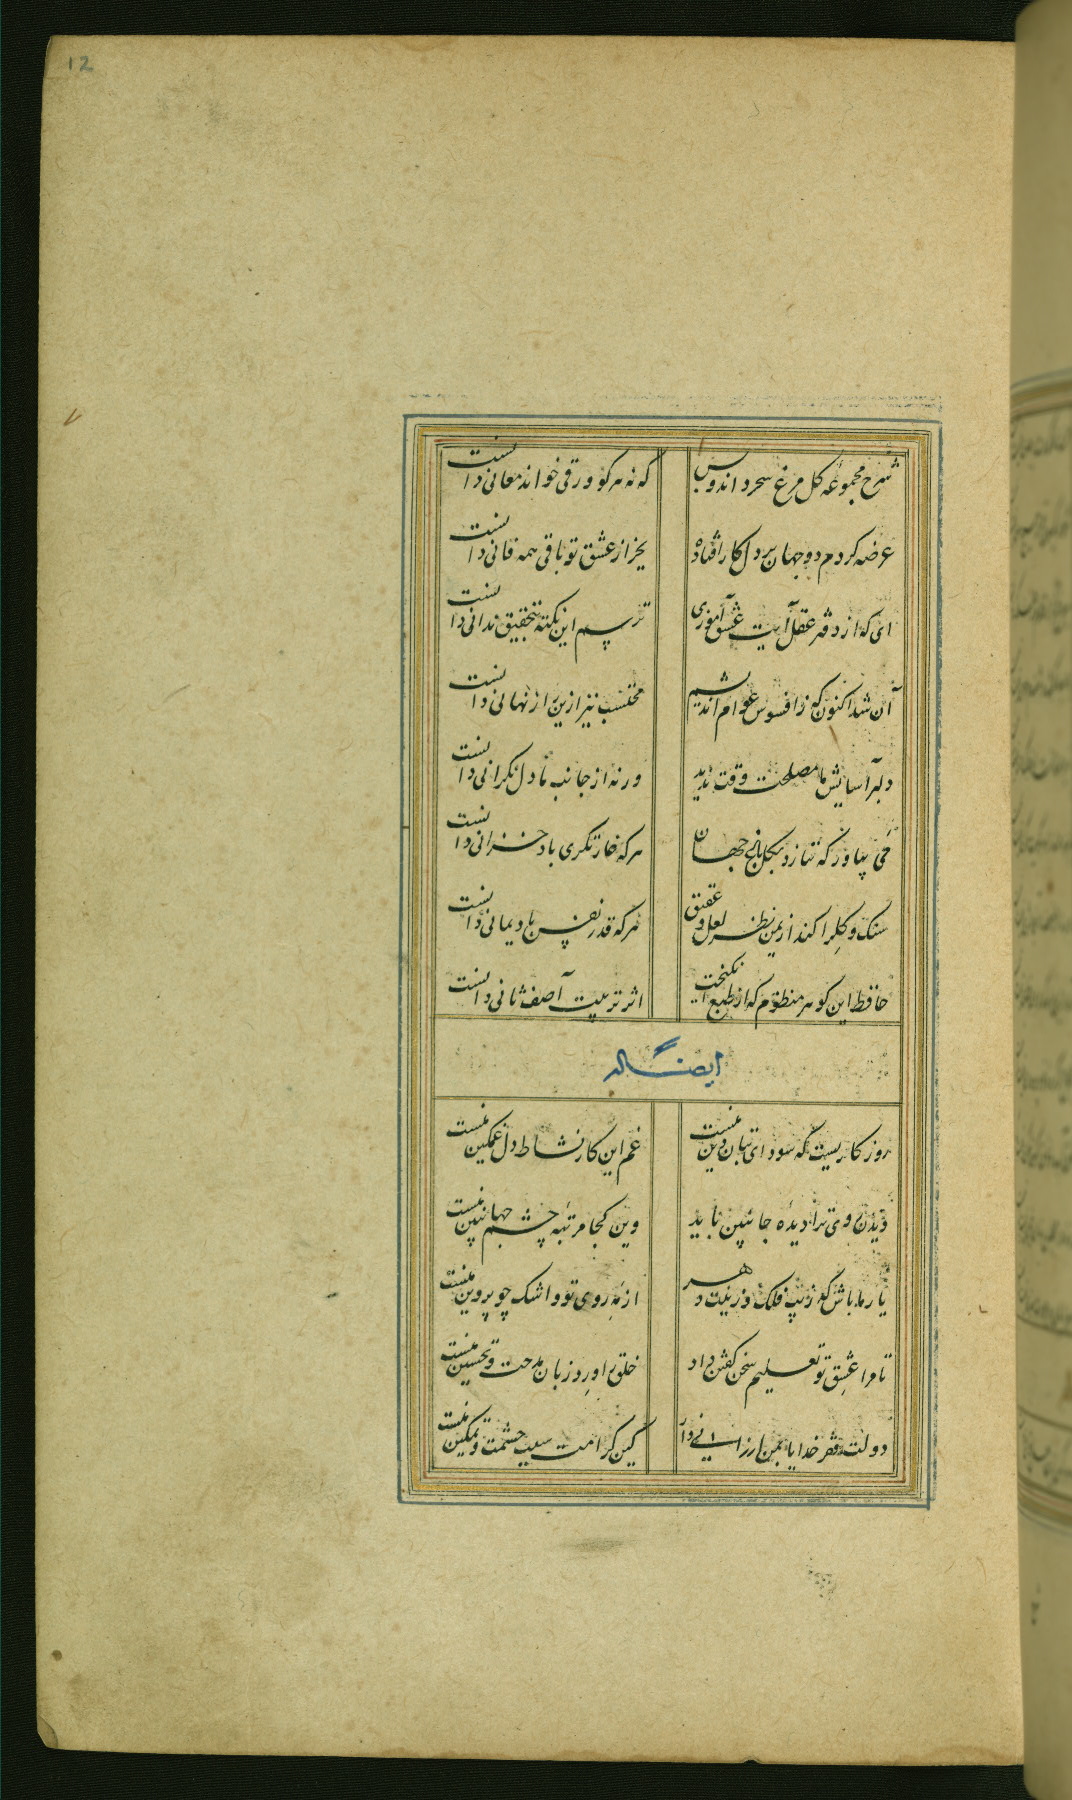 12
شرح مجموعه کل مرغ سحر داند و بس که نه هر کو ورقی خواند معانی دانست
عرضه کردم دو جهان بر دل کار افتاده بجز از عشق تو باقی همه فانی دانست
ای که از دفتر عقل آیت عشق آموزی ترسم این نکته بتحقیق ندانی دانست
آن شد اکنون که ز افسوس عوام اندیشم محتسب نیز ازین راز نهانی دانست
دلبر آسایش ما مصلحت وقت ندید ورنه از جانب ما دل نکرانی دانست
می بیاور که ننازد بکل باغ جهان هر که غارتکری باد خزانی دانست
سنک و کل را کند از یمن نظر لعل و عقیق هر که قدر نفس باد یمانی دانست
حافظ این کوهر منظوم که از طبع انکیخت اثر تربیت آصف ثانی دانست
ایضا له
روزکاریست که سودای بتان دین منست غم این کار نشاط دل غمکین منست
دیدن روی ترا دیده جان بین باید وین کجا مرتبه چشم جهان بین منست
یار ما باش که زیب فلک و زینت دهر از مه روی تو و اشک چو پروین منست
تا مرا عشق تو تعلیم سخن کفتن داد خلق را ورد زبان مدحت و تحسین منست
دولت فقر خدایا بمن ارزانی دار کین کرامت سبب حشمت و تمکین منست